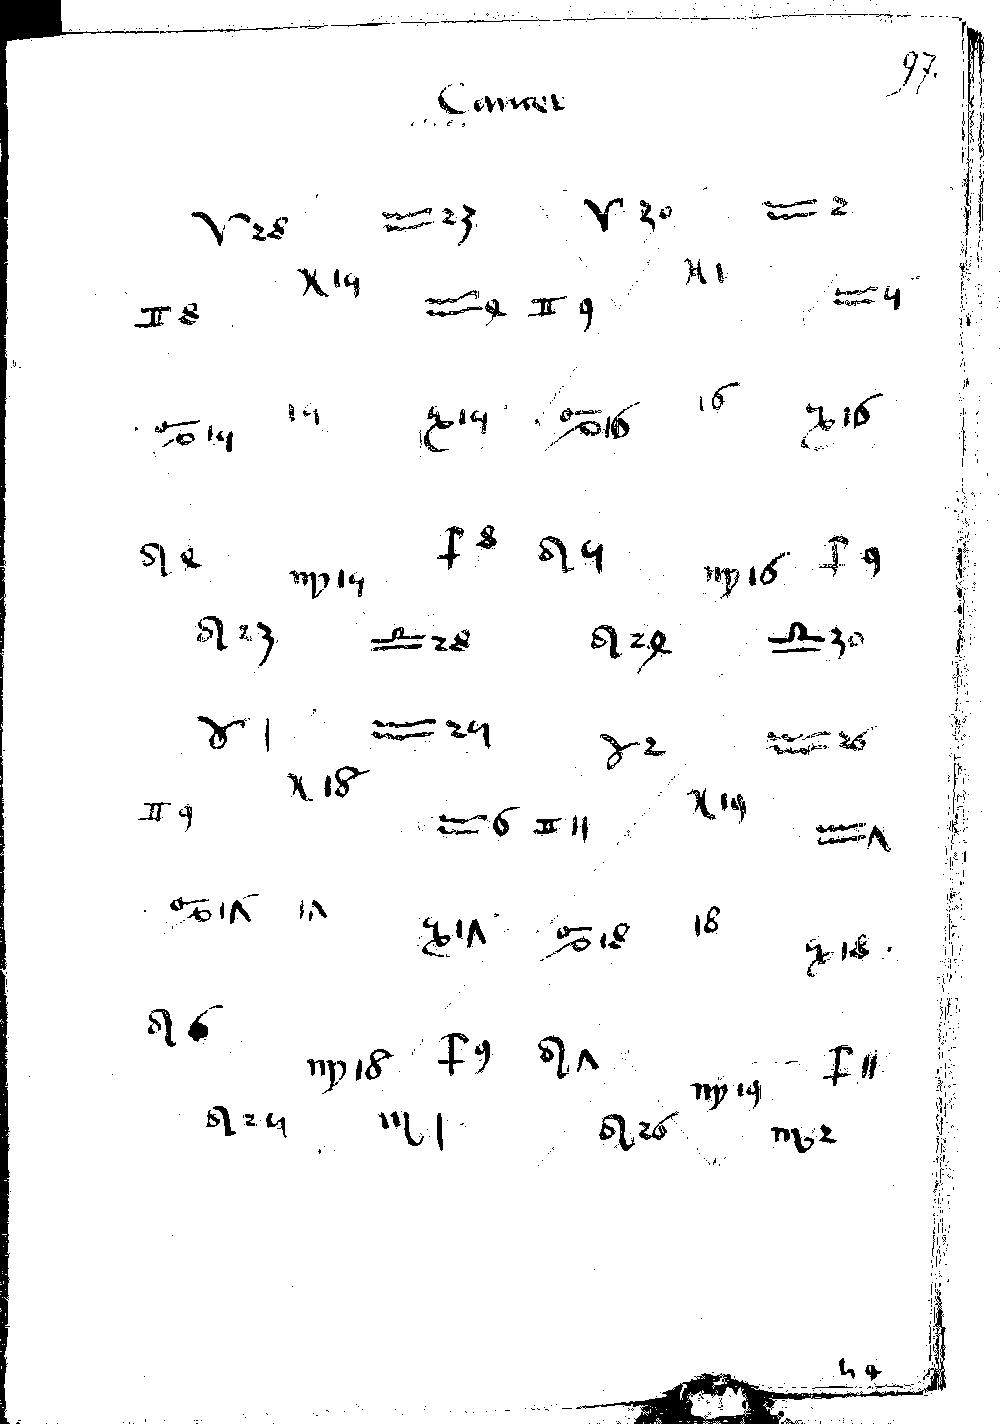 97.
Cancer
♈ 28 ♒ 23 ♈ 30 ♒ 2
♓ 14 ♓ 1
♊ 8 ♒ 4 ♊ 9 ♒ 4
♋ 14 14 ♑ 14 ♋ 16 16 ♑ 16
♌ 4 ♍ 14 ♐ 8 ♌ 4 ♍ 16 ♐ 9
♌ 23 ♎ 28 ♌ 24 ♎ 30
♉ 1 ♒ 24 ♉ 2 ♒ 26
♓ 18 ♓ 19
♊ 9 ♒ 6 ♊ 11 ♒ Λ
♋ 1Λ 1Λ ♑ 1Λ ♋ 18 18 ♑ 18
♌ 6 ♍ 18 ♐ 9 ♌ Λ ♍ 19 ♐ 11
♌ 24 ♏ 1 ♌ 26 ♏ 2